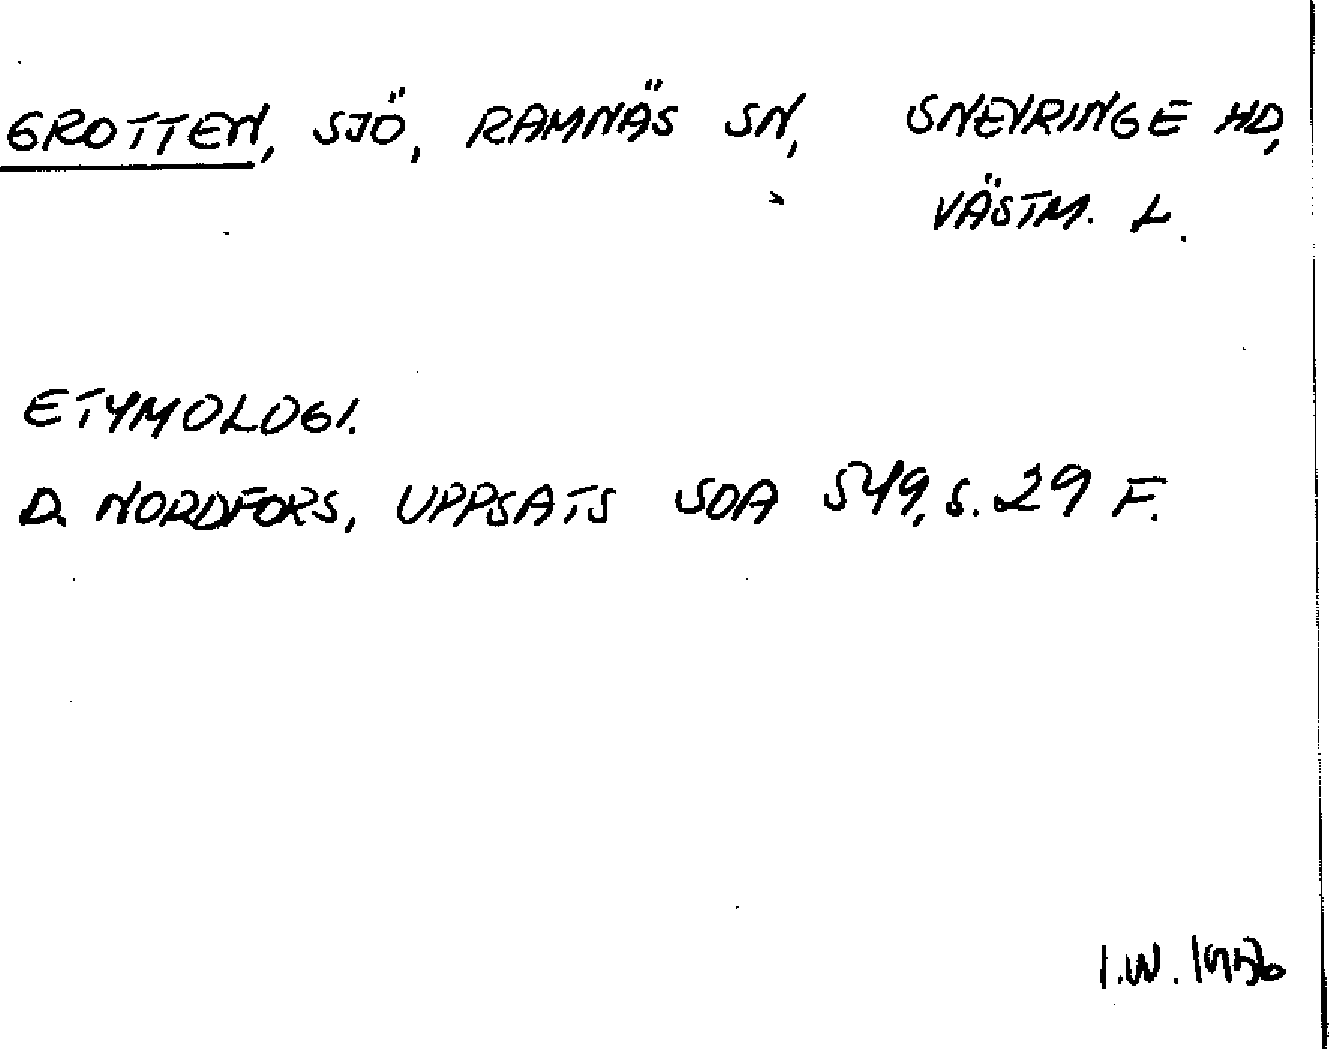 GROTTEN, SJÖ, RAMNÄS SN, SNEVRINGE HD,
VÄSTM. L.
ETYMOLOGI.
D. NORDFORS, UPPSATS SOA 549, S. 29 F.
I.W.